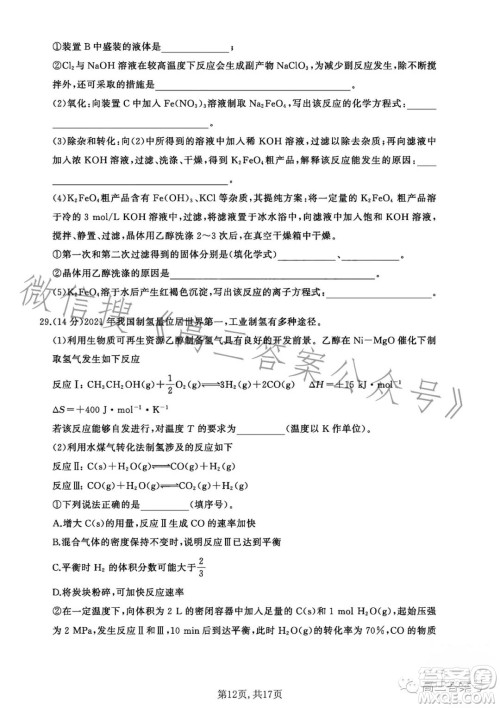 ①装置 B 中盛装的液体是____________；
②Cl₂与 NaOH 溶液在较高温度下反应会生成副产物 NaClO₃，为减少副反应发生，除不断搅
拌外，还可采取的措施是____________。
(2)氧化：向装置 C 中加入 Fe(NO₃)₃溶液制取 Na₂FeO₄，写出该反应的化学方程式：______
____________。
(3)除杂和转化：向(2)中所得的混合液中加入稀 KOH 溶液，过滤，再向滤液中加入浓 KOH 溶液，过滤、洗涤、干燥，得到 K₂FeO₄粗产品，解释该反应发生的原因：______
____________。
(4)K₂FeO₄粗产品含有 Fe(OH)₃、KCl 等杂质，其提纯方案：将一定量的 K₂FeO₄粗产品溶
于冷的 3 mol/L KOH 溶液中，过滤，将滤液置于冰水浴中，向滤液中加入饱和 KOH 溶液，
搅拌、静置、过滤，晶体用乙醇洗涤 2～3 次后，在真空干燥箱中干燥。
①第一次和第二次过滤得到的固体分别是(填化学式)____________、____________。
②晶体用乙醇洗涤的原因是____________。
(5)K₂FeO₄溶于水后产生红褐色沉淀，写出该反应的离子方程式：____________。
29.(14 分)2021 年我国制氢量位居世界第一，工业制氢有多种途径。
(1)利用生物质可再生资源乙醇制备氢气具有良好的开发前景。乙醇在 Ni－MgO 催化下制
取氢气发生如下反应
反应Ⅰ：CH₃CH₂OH＋1/2O₂(g)⇌3H₂(g)＋2CO(g) ΔH＝＋15 kJ·mol⁻¹
ΔS＝＋400 J·mol⁻¹·K⁻¹
若该反应能够自发，对温度 T 的要求为____________(温度以 K 作单位)。
(2)利用水煤气转化法制氢涉及的反应如下
反应Ⅱ：C(s)＋H₂O(g)⇌CO(g)＋H₂(g)
反应Ⅲ：CO(g)＋H₂O(g)⇌CO₂(g)＋H₂(g)
①下列说法正确的是____________(填序号)。
A.增大 C(s)的用量，反应Ⅱ生成 CO 的速率加快
B.混合气体的密度不变，说明反应Ⅲ已达到平衡
C.平衡时 H₂的体积分数可能大于2/3
D.将炭块粉碎，可加快反应速率
②在一定温度下，向体积为 2 L 的密闭容器中加入足量的 C(s)和 1 mol H₂O(g)，起始压强
为 2 MPa，发生反应Ⅱ和Ⅲ，平衡时 H₂O(g)的转化率为 70%，CO 的物质
第12页，共17页
微信搜《高三答案公众号》
高三答案